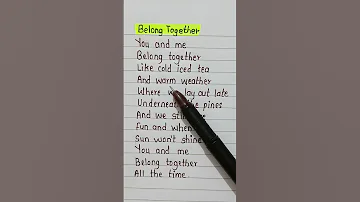 Belong Together
You and me
Belong together
Like cold iced tea
And warm weather
Where lay out late
Underneath pines
And we st
fun and when
Sun won't shine
You and me
Belong together
All the time